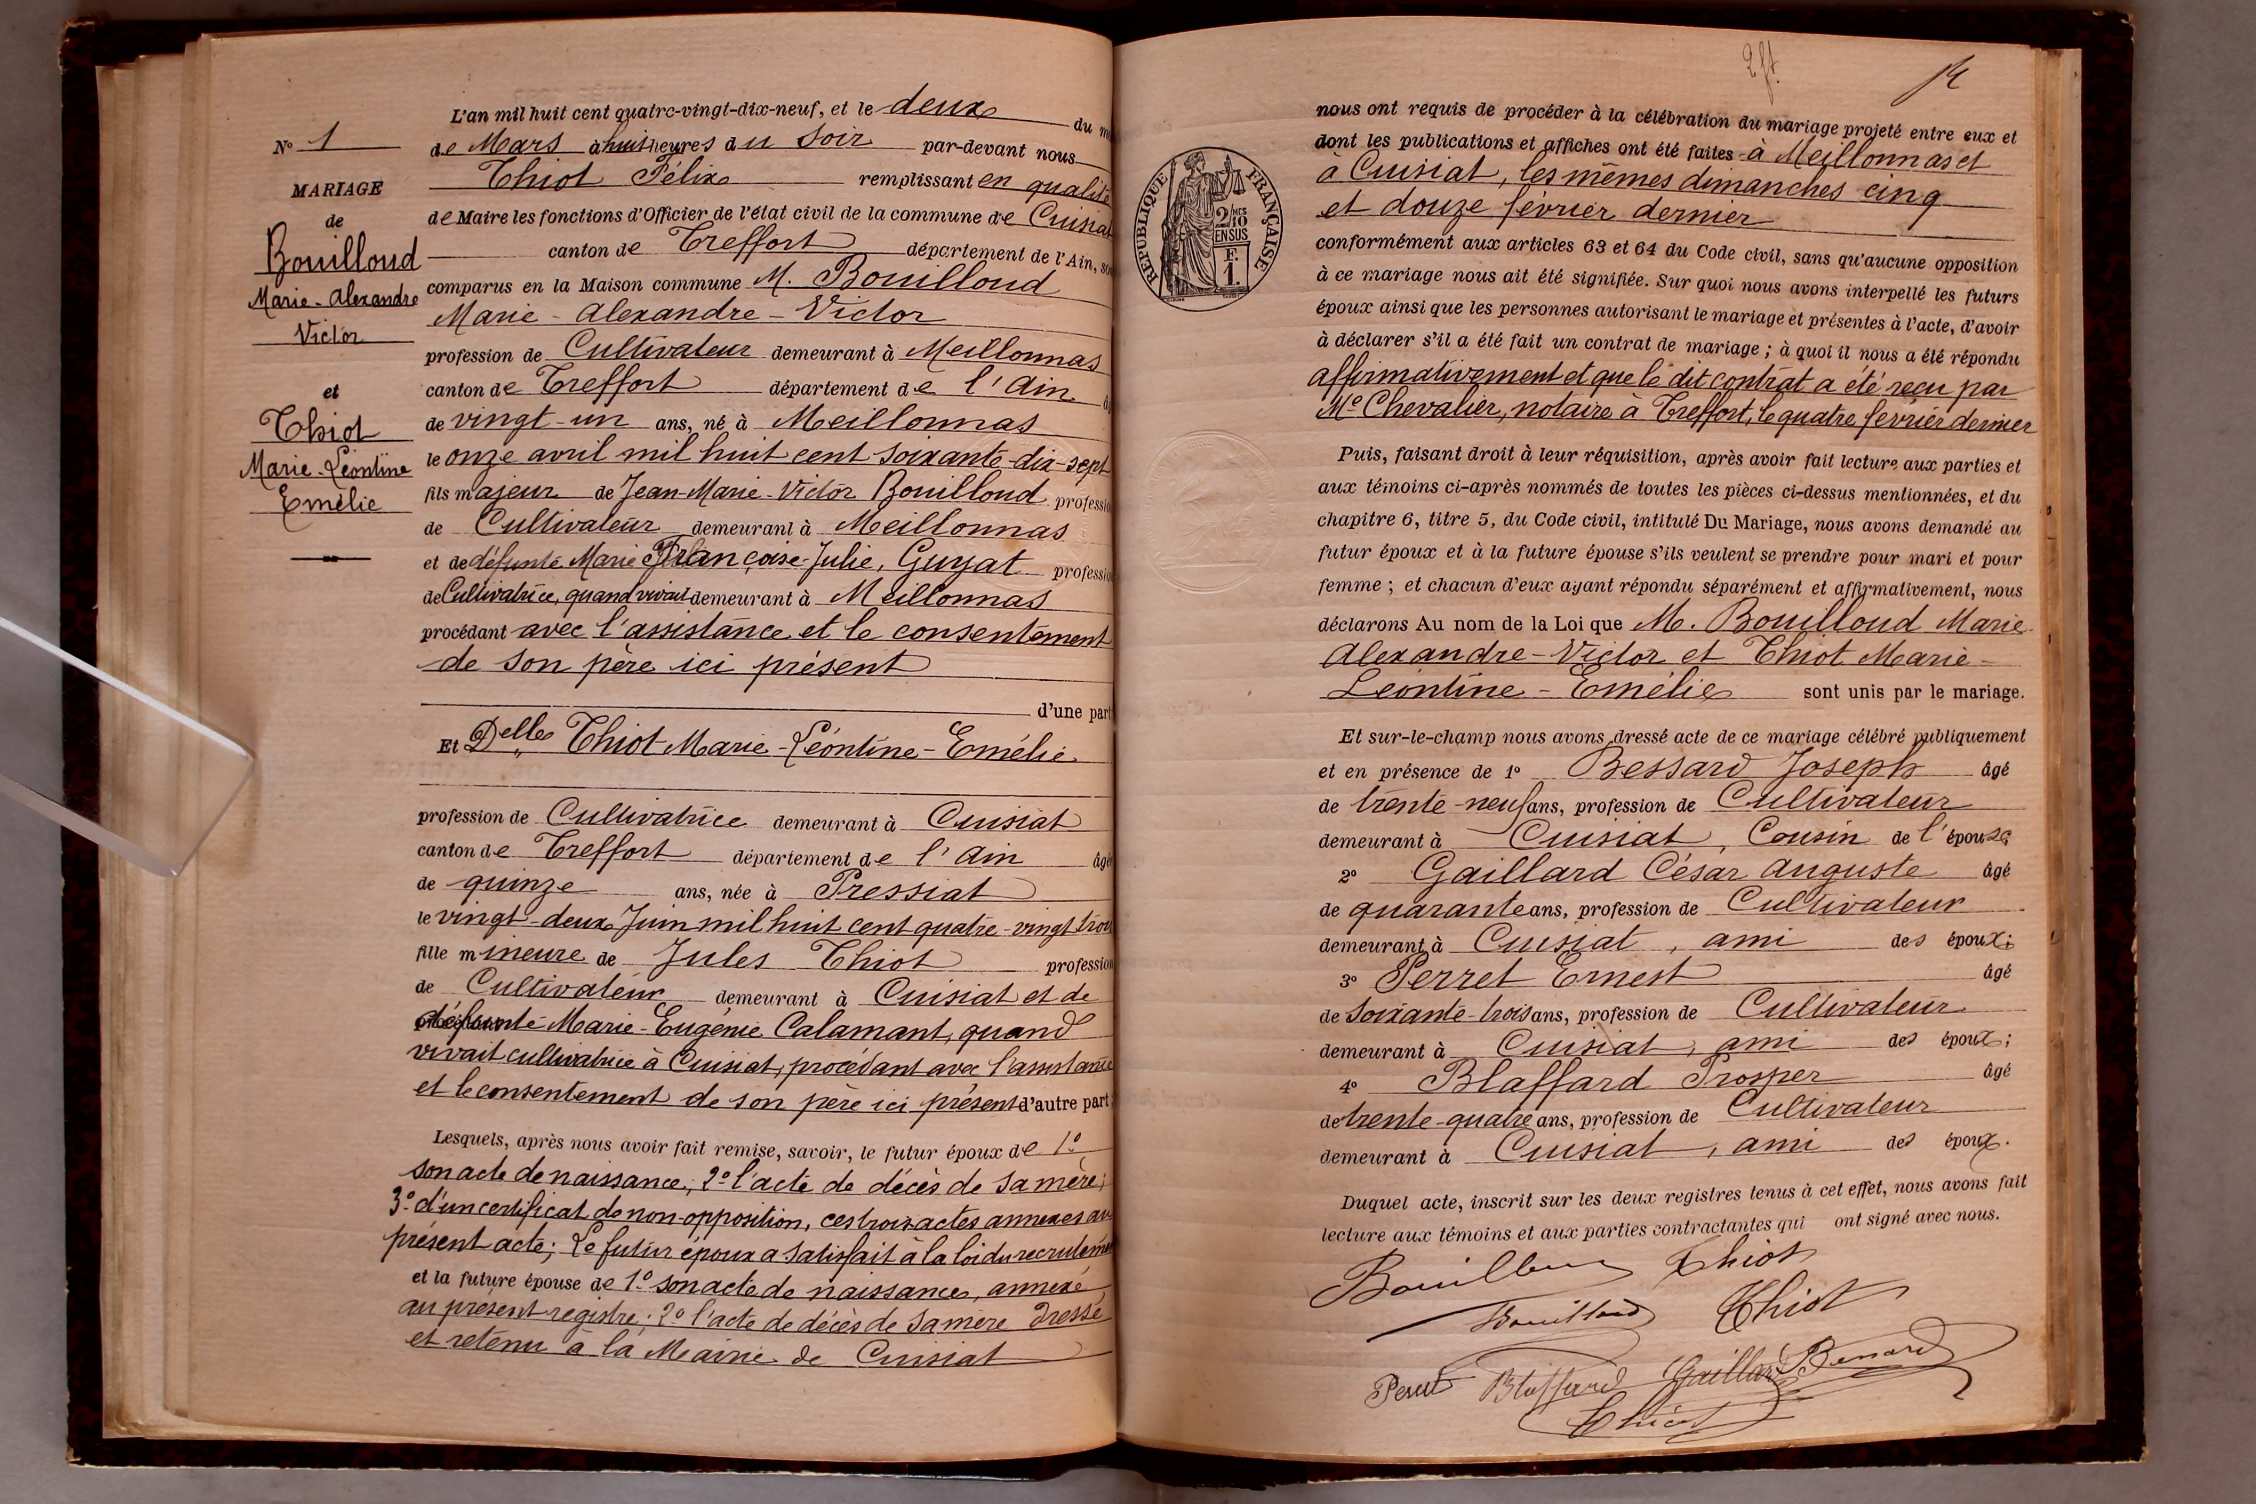 N° 1
MARIAGE
de
Bouilloud
Marie-Alexandre
Victor
et
Thiot
Marie-Léontine
Emélie
L'an mil huit cent quatre-vingt-dix-neuf, et le deux du m
de Mars à huit heures du soir par-devant nous
Thiot Félix remplissant en qualité
de Maire les fonctions d'Officier de l'état civil de la commune de Cuisiat
canton de Treffort département de l'Ain, so
comparus en la Maison commune M. Bouilloud
Marie-Alexandre-Victor
profession de Cultivateur demeurant à Meillonnas
canton de Treffort département de l'Ain
de vingt-un ans, né à Meillonnas
le onze avril mil huit cent soixante-dix-sept
fils majeur de Jean-Marie-Victor Bouilloud professio
de Cultivateur demeurant à Meillonnas
et de défunte Marie Françoise-Julie, Guyat professio
de Cultivatrice, quand vivait demeurant à Meillonnas
procédant avec l'assistance et le consentement
de son père ici présent
d'une part
Et Delle Thiot Marie-Léontine-Emélie
profession de Cultivatrice demeurant à Cuisiat
canton de Treffort département de l'Ain âgé
de quinze ans, née à Pressiat
le vingt-deux Juin mil huit cent quatre-vingt trois
fille mineure de Jules Thiot profession
de Cultivateur demeurant à Cuisiat et de
défunte Marie-Eugénie Calamant, quand
vivait cultivatrice à Cuisiat, procédant avec l'assistance
et le consentement de son père ici présent d'autre part
Lesquels, après nous avoir fait remise, savoir, le futur époux de 1°
son acte de naissance; 2° l'acte de décès de sa mère;
3° d'un certificat de non-opposition, ces trois actes annexés au
présent acte; Le futur époux a satisfait à la loi du recrutement
et la future épouse de 1° son acte de naissance, annexé
au présent registre; 2° l'acte de décès de sa mère dressé
et retenu à la Mairie de Cuisiat
RÉPUBLIQUE FRANÇAISE
2/10
EN SUS
F.
1.
nous ont requis de procéder à la célébration du mariage projeté entre eux et
dont les publications et affiches ont été faites à Meillonnas et
à Cuisiat, les mêmes dimanches cinq
et douze fevrier dernier
conformément aux articles 63 et 64 du Code civil, sans qu'aucune opposition
à ce mariage nous ait été signifiée. Sur quoi nous avons interpellé les futurs
époux ainsi que les personnes autorisant le mariage et présentes à l'acte, d'avoir
à déclarer s'il a été fait un contrat de mariage; à quoi il nous a été répondu
affirmativement et que le dit contrat a été reçu par
Me Chevalier, notaire à Treffort, le quatre fevrier dernier
Puis, faisant droit à leur réquisition, après avoir fait lecture aux parties et
aux témoins ci-après nommés de toutes les pièces ci-dessus mentionnées, et du
chapitre 6, titre 5, du Code civil, intitulé Du Mariage, nous avons demandé au
futur époux et à la future épouse s'ils veulent se prendre pour mari et pour
femme; et chacun d'eux ayant répondu séparément et affirmativement, nous
déclarons Au nom de la Loi que M. Bouilloud Marie
Alexandre-Victor et Thiot Marie-
Léontine-Emélie sont unis par le mariage.
Et sur-le-champ nous avons dressé acte de ce mariage célébré publiquement
et en présence de 1° Bessard Joseph âgé
de trente-neuf ans, profession de Cultivateur
demeurant à Cuisiat, Cousin de l'épouse;
2° Gaillard César Auguste âgé
de quarante ans, profession de Cultivateur
demeurant à Cuisiat, ami des époux;
3° Perret Ernest âgé
de soixante-trois ans, profession de Cultivateur
demeurant à Cuisiat, ami des époux;
4° Blaffard Prosper âgé
de trente-quatre ans, profession de Cultivateur
demeurant à Cuisiat, ami des époux.
Duquel acte, inscrit sur les deux registres tenus à cet effet, nous avons fait
lecture aux témoins et aux parties contractantes qui ont signé avec nous.
Bouilloud Thiot
Bouilloud Thiot
Perret Blaffard Gaillard Bessard
Thiot